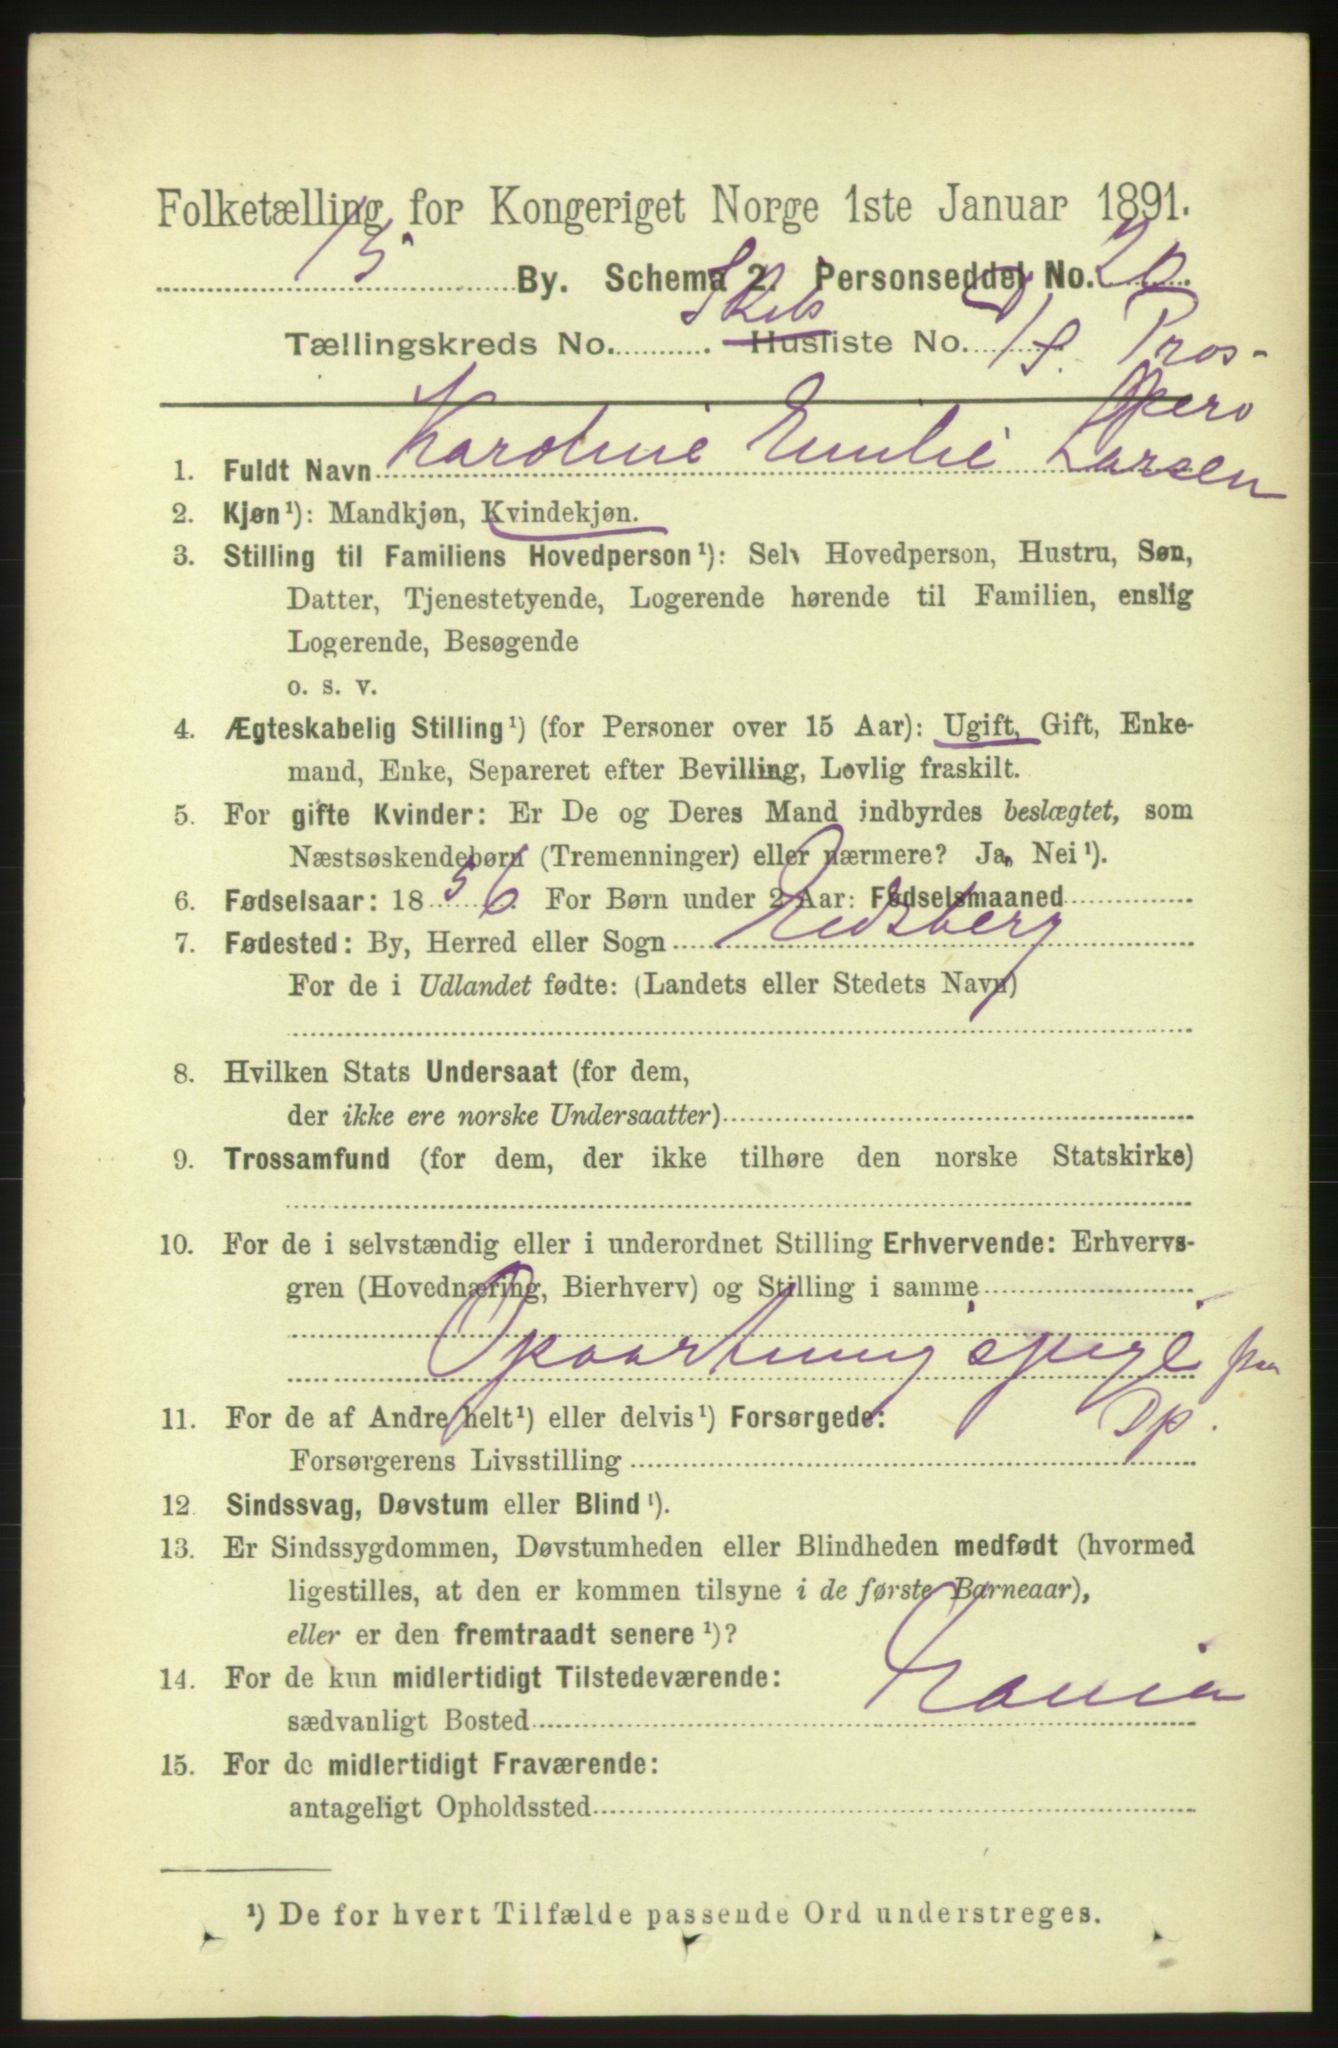 Folketælling for Kongeriget Norge 1ste Januar 1891.
15 By. Schema 2. Personseddel No. 20
Tællingskreds No. Skibs Husliste No. D/S. Pros-
pero
1. Fuldt Navn Karoline Emilie Larsen
2. Kjøn¹): Mandkjøn, Kvindekjøn.
3. Stilling til Familiens Hovedperson¹): Selv Hovedperson, Hustru, Søn,
Datter, Tjenestetyende, Logerende hørende til Familien, enslig
Logerende, Besøgende
o. s. v.
4. Ægteskabelig Stilling¹) (for Personer over 15 Aar): Ugift, Gift, Enke-
mand, Enke, Separeret efter Bevilling, Lovlig fraskilt.
5. For gifte Kvinder: Er De og Deres Mand indbyrdes beslægtet, som
Næstsøskendebørn (Tremenninger) eller nærmere? Ja, Nei¹).
6. Fødselsaar: 1856 For Børn under 2 Aar: Fødselsmaaned
7. Fødested: By, Herred eller Sogn Eidsberg
For de i Udlandet fødte: (Landets eller Stedets Navn)
8. Hvilken Stats Undersaat (for dem,
der ikke ere norske Undersaatter)
9. Trossamfund (for dem, der ikke tilhøre den norske Statskirke)
10. For de i selvstændig eller i underordnet Stilling Erhvervende: Erhvervs-
gren (Hovednæring, Bierhverv) og Stilling i samme
Opvartningspige paa
Dp.
11. For de af Andre helt¹) eller delvis¹) Forsørgede:
Forsørgerens Livsstilling
12. Sindssvag, Døvstum eller Blind¹).
13. Er Sindssygdommen, Døvstumheden eller Blindheden medfødt (hvormed
ligestilles, at den er kommen tilsyne i de første Barneaar),
eller er den fremtraadt senere¹)?
14. For de kun midlertidigt Tilstedeværende:
sædvanligt Bosted
15. For de midlertidigt Fraværende:
antageligt Opholdssted
¹) De for hvert Tilfælde passende Ord understreges.